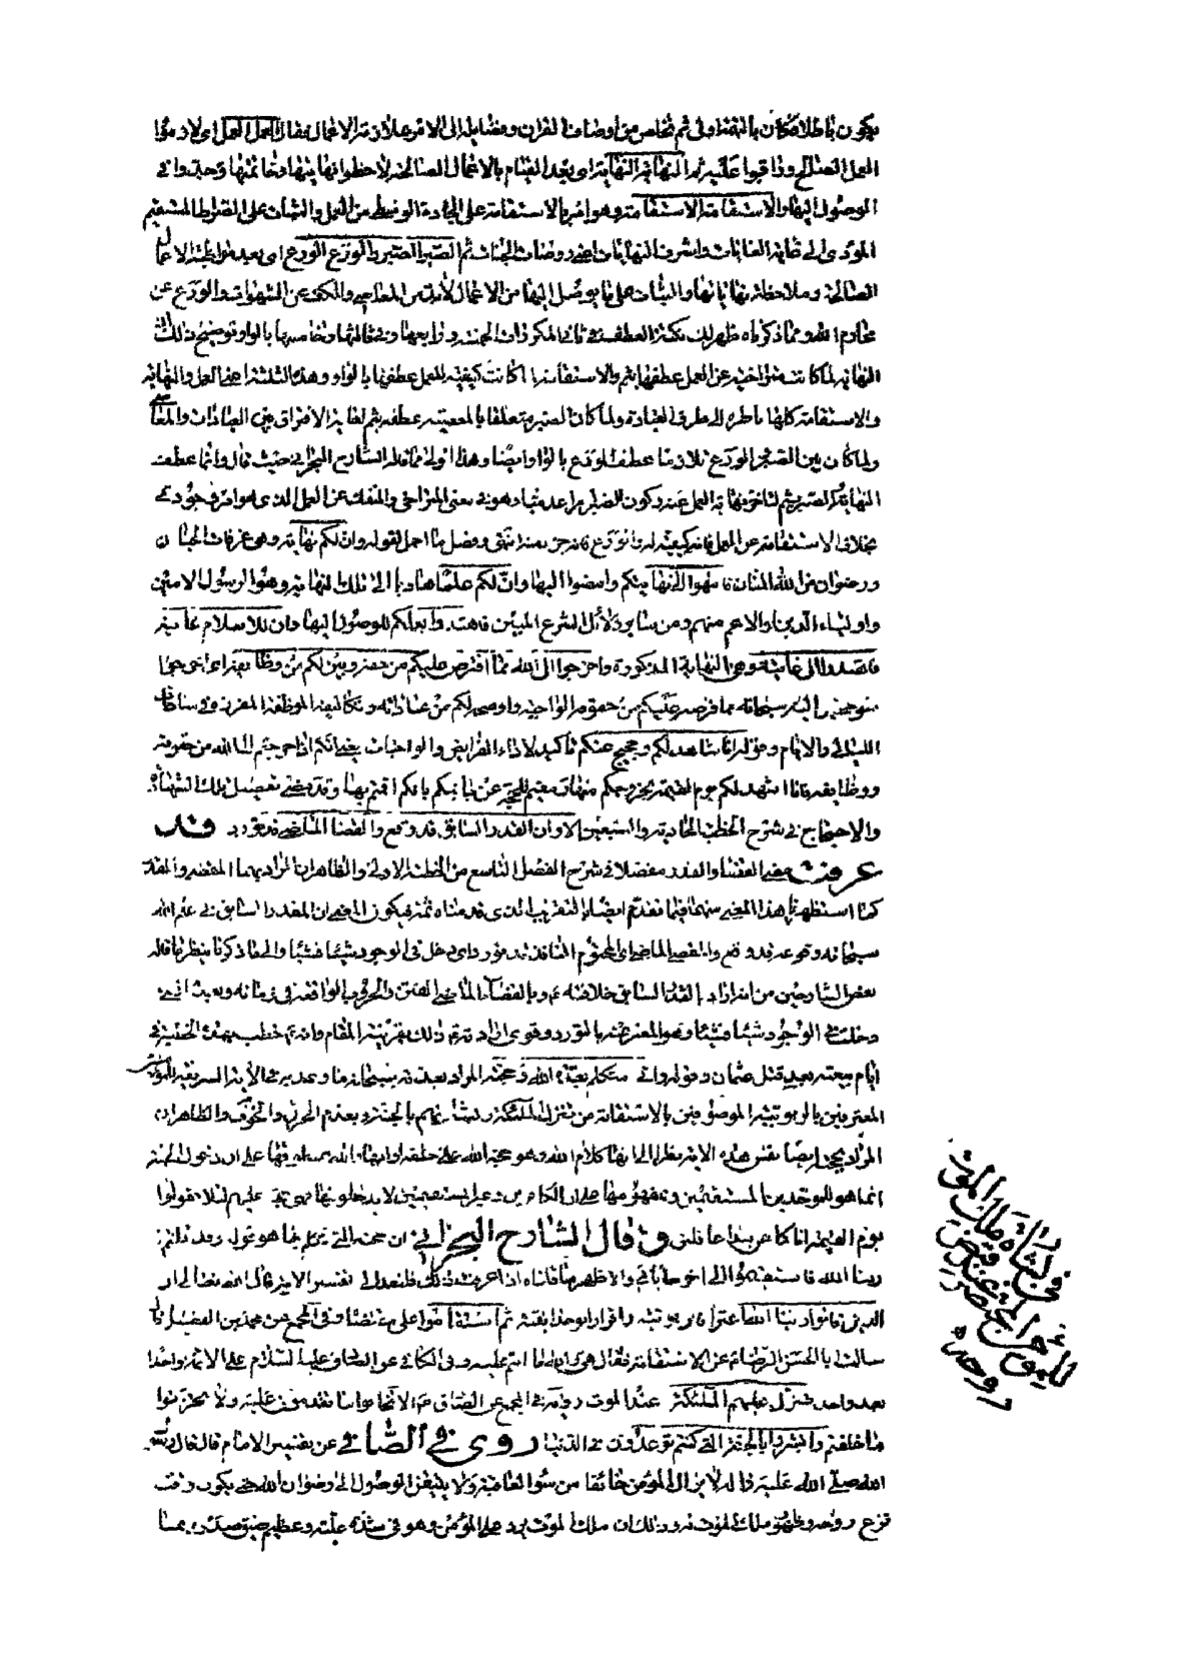 يكون باطلا فكان بالتهتاوفى ثم تخلص من أوصاف القرآن وفضايله إلى الأمر بملازمة الاعمال فقال العمل العمل اى لازموا
العمل الصالح وواقبوا عليه ثم النهاية النهاية اى بعد القيام بالاعمال الصالحة لاحظوا نهايتها وخاتمتها وجدوا فى
الوصول اليها والاستقامة الاستقامة وهو امر بالاستقامة على الجادة الوسطى من العمل والثبات على الصراط المستقيم
المؤدى الى غاية الغايات واشرف النهايات اعنى روضات الجنات ثم الصبر الصبر والورع الورع اى بعد مواظبة الاعمال
الصالحة وملاحظة نهاياتها والثبات على ما يوصل اليها من الاعمال لابد من المعاصى والكف عن الشهوات والورع عن
محارم الله ومما ذكرناه ظهر لك نكتة العطف فى ثانى المكررات بثم ورابعها وفى ثالثها وخامسها بالواو توضيح ذلك ان
النهاية لما كانت متراخية عن العمل عطفها بثم والاستقامة لما كانت كيفية للعمل عطفها بالواو وهذه الثلثة اعنى العمل والنهاية
والاستقامة كلها ناظرة الى طرف العبادة ولما كان الصبر متعلقا بالمعصية عطفه بثم لغاية الافتراق بين العبادات والمعاصى
ولما كان بين الصبر والورع تلازما عطف الورع بالواو ايضا وهذا أولى مما قاله الشارح البحرانى حيث قال وانما عطف
النهاية والصبر بثم لتأخر نهاية العمل عنه وكون الصبر امرا عدميا وهو فى معنى المتراخى والمنفك عن العمل الذى هو امر وجودى
بخلاف الاستقامة عن العمل فانه كيفية له والورع فانه جزء منه انتهى وفصل ما اجمل بقوله وان لكم نهاية وهى غرفات الجنان
ورضوان من الله المنان فانتهوا الى نهايتكم وامضوا اليها وان لكم علما هاديا الى تلك النهاية وهو الرسول الامين
واولياء الدين او الاعم منهم ومن سائر دلائل الشرع المبين فاهتدوا بعلمكم للوصول اليها وان للاسلام غاية
فاقصدوا الى غايته وهى النهاية المذكورة واخرجوا الى الله مما افترض عليكم من حقه وبين لكم من وظائفه اى
متوجهين اليه سبحانه مما فرضه عليكم من حقوقه الواجبة واوضحه لكم من عباداته وتكاليفه الموظفة المقررة فى ساعات
الليالى والايام وقوله انا شاهد لكم وحجيج عنكم تأكيد لاداء الفرايض والواجبات يعنى انكم اذا خرجتم الى الله من حقوقه
ووظايفه فانا اشهد لكم يوم القيمة بخروجكم منها ومقيم للحجة عن جانبكم بانكم اقمتم بها وقد مضى تفصيل تلك الشهادة
والاحتجاج فى شرح الخطبة الحادية والسبعين الا وان القدر السابق قد وقع والقضاء الماضى قد تورد قد
عرفت معنى القضاء والقدر مفصلا فى شرح الفصل التاسع من الخطبة الاولى والظاهر ان المراد بهما المقضى والمقدر
كما استظهرنا هذا المعنى منهما فيما تقدم ايضا التقريب الذى قدمناه ثمة فيكون المعنى ان المقدر السابق فى علم الله
سبحانه وقوعه قد وقع والمقضى الماضى اى المحتوم النافذ قد تورد اى دخل فى الوجود شيئا فشيئا والى ما ذكرنا ينظر ما قاله
بعض الشارحين من انه اراد بالقدر السابق خلافته ع وبالقضاء الماضى الفتن والحروب الواقعة فى زمانه وبعده التى
دخلت فى الوجود شيئا فشيئا وهو المعبر عنه بالتورد وقوى ارادته ع ذلك بقرينة المقام وانه ع خطب بهذه الخطبة فى
ايام بيعته بعد قتل عثمان وقوله وانى متكلم بعدة الله وحجته المراد بعدته سبحانه ما وعد به فى الآية الشريفة المؤمنين
المعترفين بالربوبية الموصوفين بالاستقامة من تنزل الملئكة وبشارتهم بالجنة وبعدم الحزن والخوف والظاهر ان
المراد بحجته ايضا نفس هذه الآية نظرا الى انها كلام الله وهو حجة الله على خلقه
انما هو للموحدين المستقيمين ومفهومها على ان الكافرين وغير المستقيمين لا يدخلونها فهى حجة عليهم لئلا يقولوا
يوم القيمة انا كنا عن هذا غافلين وقال الشارح البحرانى ان حجته التى تكلم بها هو قوله وقد قلتم
ربنا الله فاستقيموا الى آخر ما يأتى والاظهر ما قلناه اذا عرفت ذلك فلنعد الى تفسير الآية قال الله تعالى ان
الذين قالوا ربنا الله اعترافا بربوبيته واقرارا بوحدانيته ثم استقاموا على مقتضاه وفى المجمع عن محمد بن الفضيل قال
سألت ابا الحسن الرضا ع عن الاستقامة فقال هى والله ما انتم عليه وفى الكافى عن الصادق عليه السلام على الائمة واحدا
بعد واحد تتنزل عليهم الملئكة عند الموت رواه فى المجمع عن الصادق ع الا تخافوا ما تقدمون عليه ولا تحزنوا
ما خلفتم وابشروا بالجنة التى كنتم توعدون فى الدنيا روى فى الصافى عن تفسير الامام قال قال رسول
الله صلى الله عليه وآله لا يزال المؤمن خائفا من سوء العاقبة ولا يتيقن الوصول الى رضوان الله حتى يكون وقت
نزع روحه وظهور ملك الموت له وذلك ان ملك الموت يرد على المؤمن وهو فى شدة علته وعظيم ضيق صدره بما
فى بشارة ملك الموت
للمؤمن
عن قبض
روحه